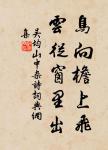 鳥向檐上飛
雲從窗里出
吳均山中杂詩詞典網
集